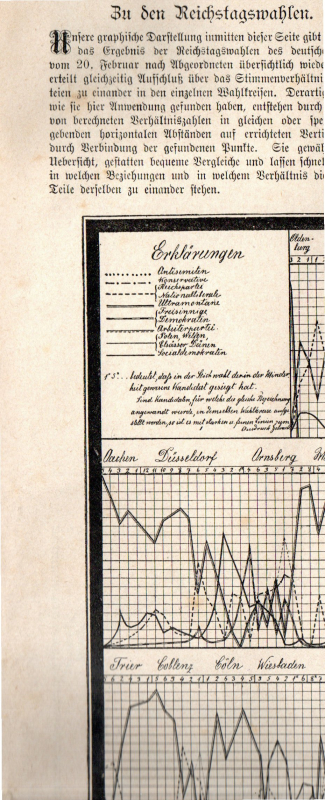 Zu den Reichstagswahlen.
Unsere graphische Darstellung inmitten dieser Seite gibt
das Ergebnis der Reichstagswahlen des deutsch
vom 20. Februar nach Abgeordneten übersichtlich wiede
erteilt gleichzeitig Aufschluß über das Stimmenverhältni
teien zu einander in den einzelnen Wahlkreisen. Derartig
wie sie hier Anwendung gefunden haben, entstehen durch
von berechneten Verhältniszahlen in gleichen oder spe
gebenden horizontalen Abständen auf errichteten Verti
durch Verbindung der gefundenen Punkte. Sie gewäh
Uebersicht, gestatten bequeme Vergleiche und lassen schnel
in welchen Beziehungen und in welchem Verhältnis di
Teile derselben zu einander stehen.
Erklärungen
Antisemiten
Konservative
Reichspartei
Nationalliberale
Ultramontane
Freisinnige
Demokraten
Arbeiterpartei
Polen, Welfen,
Elsässer, Dänen
Socialdemokraten
bedeutet, daß in der Stichwahl der in der Minder
heit gewesene Kandidat gesiegt hat.
Sind Kandidaten, für welche die gleiche Bezeichnung
angewandt wurde, in demselben Wahlkreise aufge
stellt worden, so ist es mit starken u. feinen Linien zum
Ausdruck
Olden-
burg
Aachen Düsseldorf Arnsberg
Trier Coblenz Cöln Wiesbaden